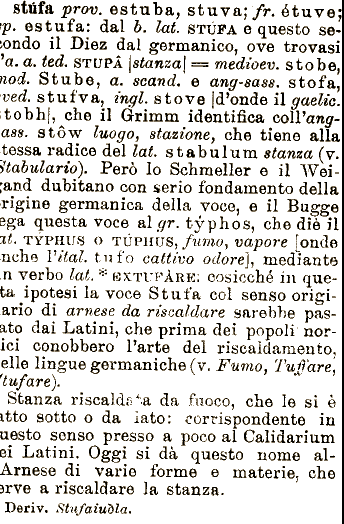 stúfa prov. estuba, stuva; fr. étuve;
sp. estufa: dal b. lat. STÙFA e questo se-
condo il Diez dal germanico, ove trovasi
l'a. a. ted. STUPÂ |stanza| = medioev. stobe,
mod. Stube, a. scand. e ang-sass. stofa,
sved. stufva, ingl. stove |d'onde il gaelic.
stobh|, che il Grimm identifica coll'ang-
sass. stôw luogo, stazione, che tiene alla
stessa radice del lat. stabulum stanza (v.
Stabulario). Però lo Schmeller e il Wei-
gand dubitano con serio fondamento della
origine germanica della voce, e il Bugge
lega questa voce al gr. tỳphos, che diè il
lat. TYPHUS o TÙPHUS, fumo, vapore [onde
anche l'ital. tufo cattivo odore], mediante
un verbo lat. * EXTUFÀRE: cosicchè in que-
sta ipotesi la voce Stufa col senso origi-
nario di arnese da riscaldare sarebbe pas-
sato dai Latini, che prima dei popoli nor-
dici conobbero l'arte del riscaldamento,
nelle lingue germaniche (v. Fumo, Tuffare,
Stufare).
Stanza riscaldata da fuoco, che le si è
fatto sotto o da lato: corrispondente in
questo senso presso a poco al Calidarium
dei Latini. Oggi si dà questo nome al-
l'Arnese di varie forme e materie, che
serve a riscaldare la stanza.
Deriv. Stufaiuòla.